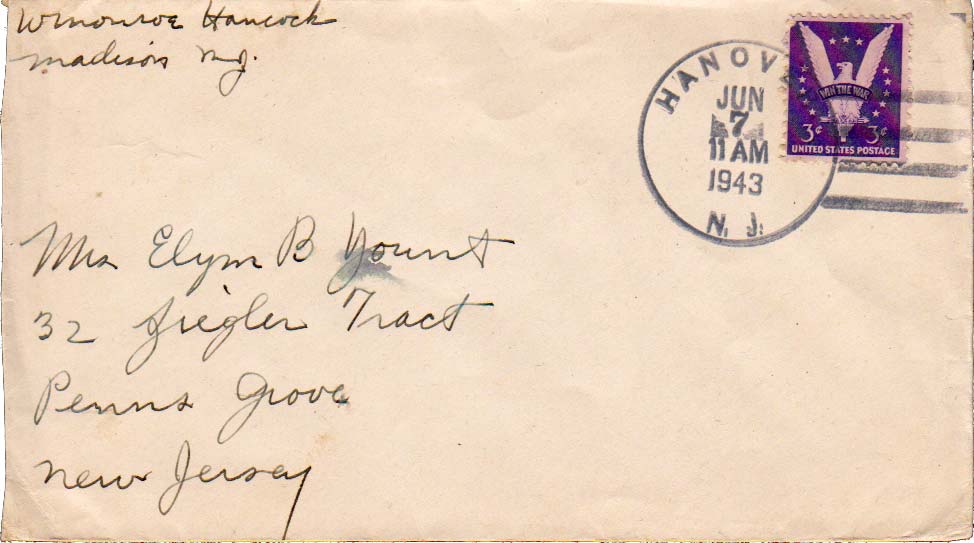 W Monroe Hancock
Madison N.J.
HANOVE
JUN
7
11 AM
1943
N. J.
WIN THE WAR
3¢ 3¢
UNITED STATES POSTAGE
Mrs Elym B Yount
32 Ziegler Tract
Penns Grove
New Jersey